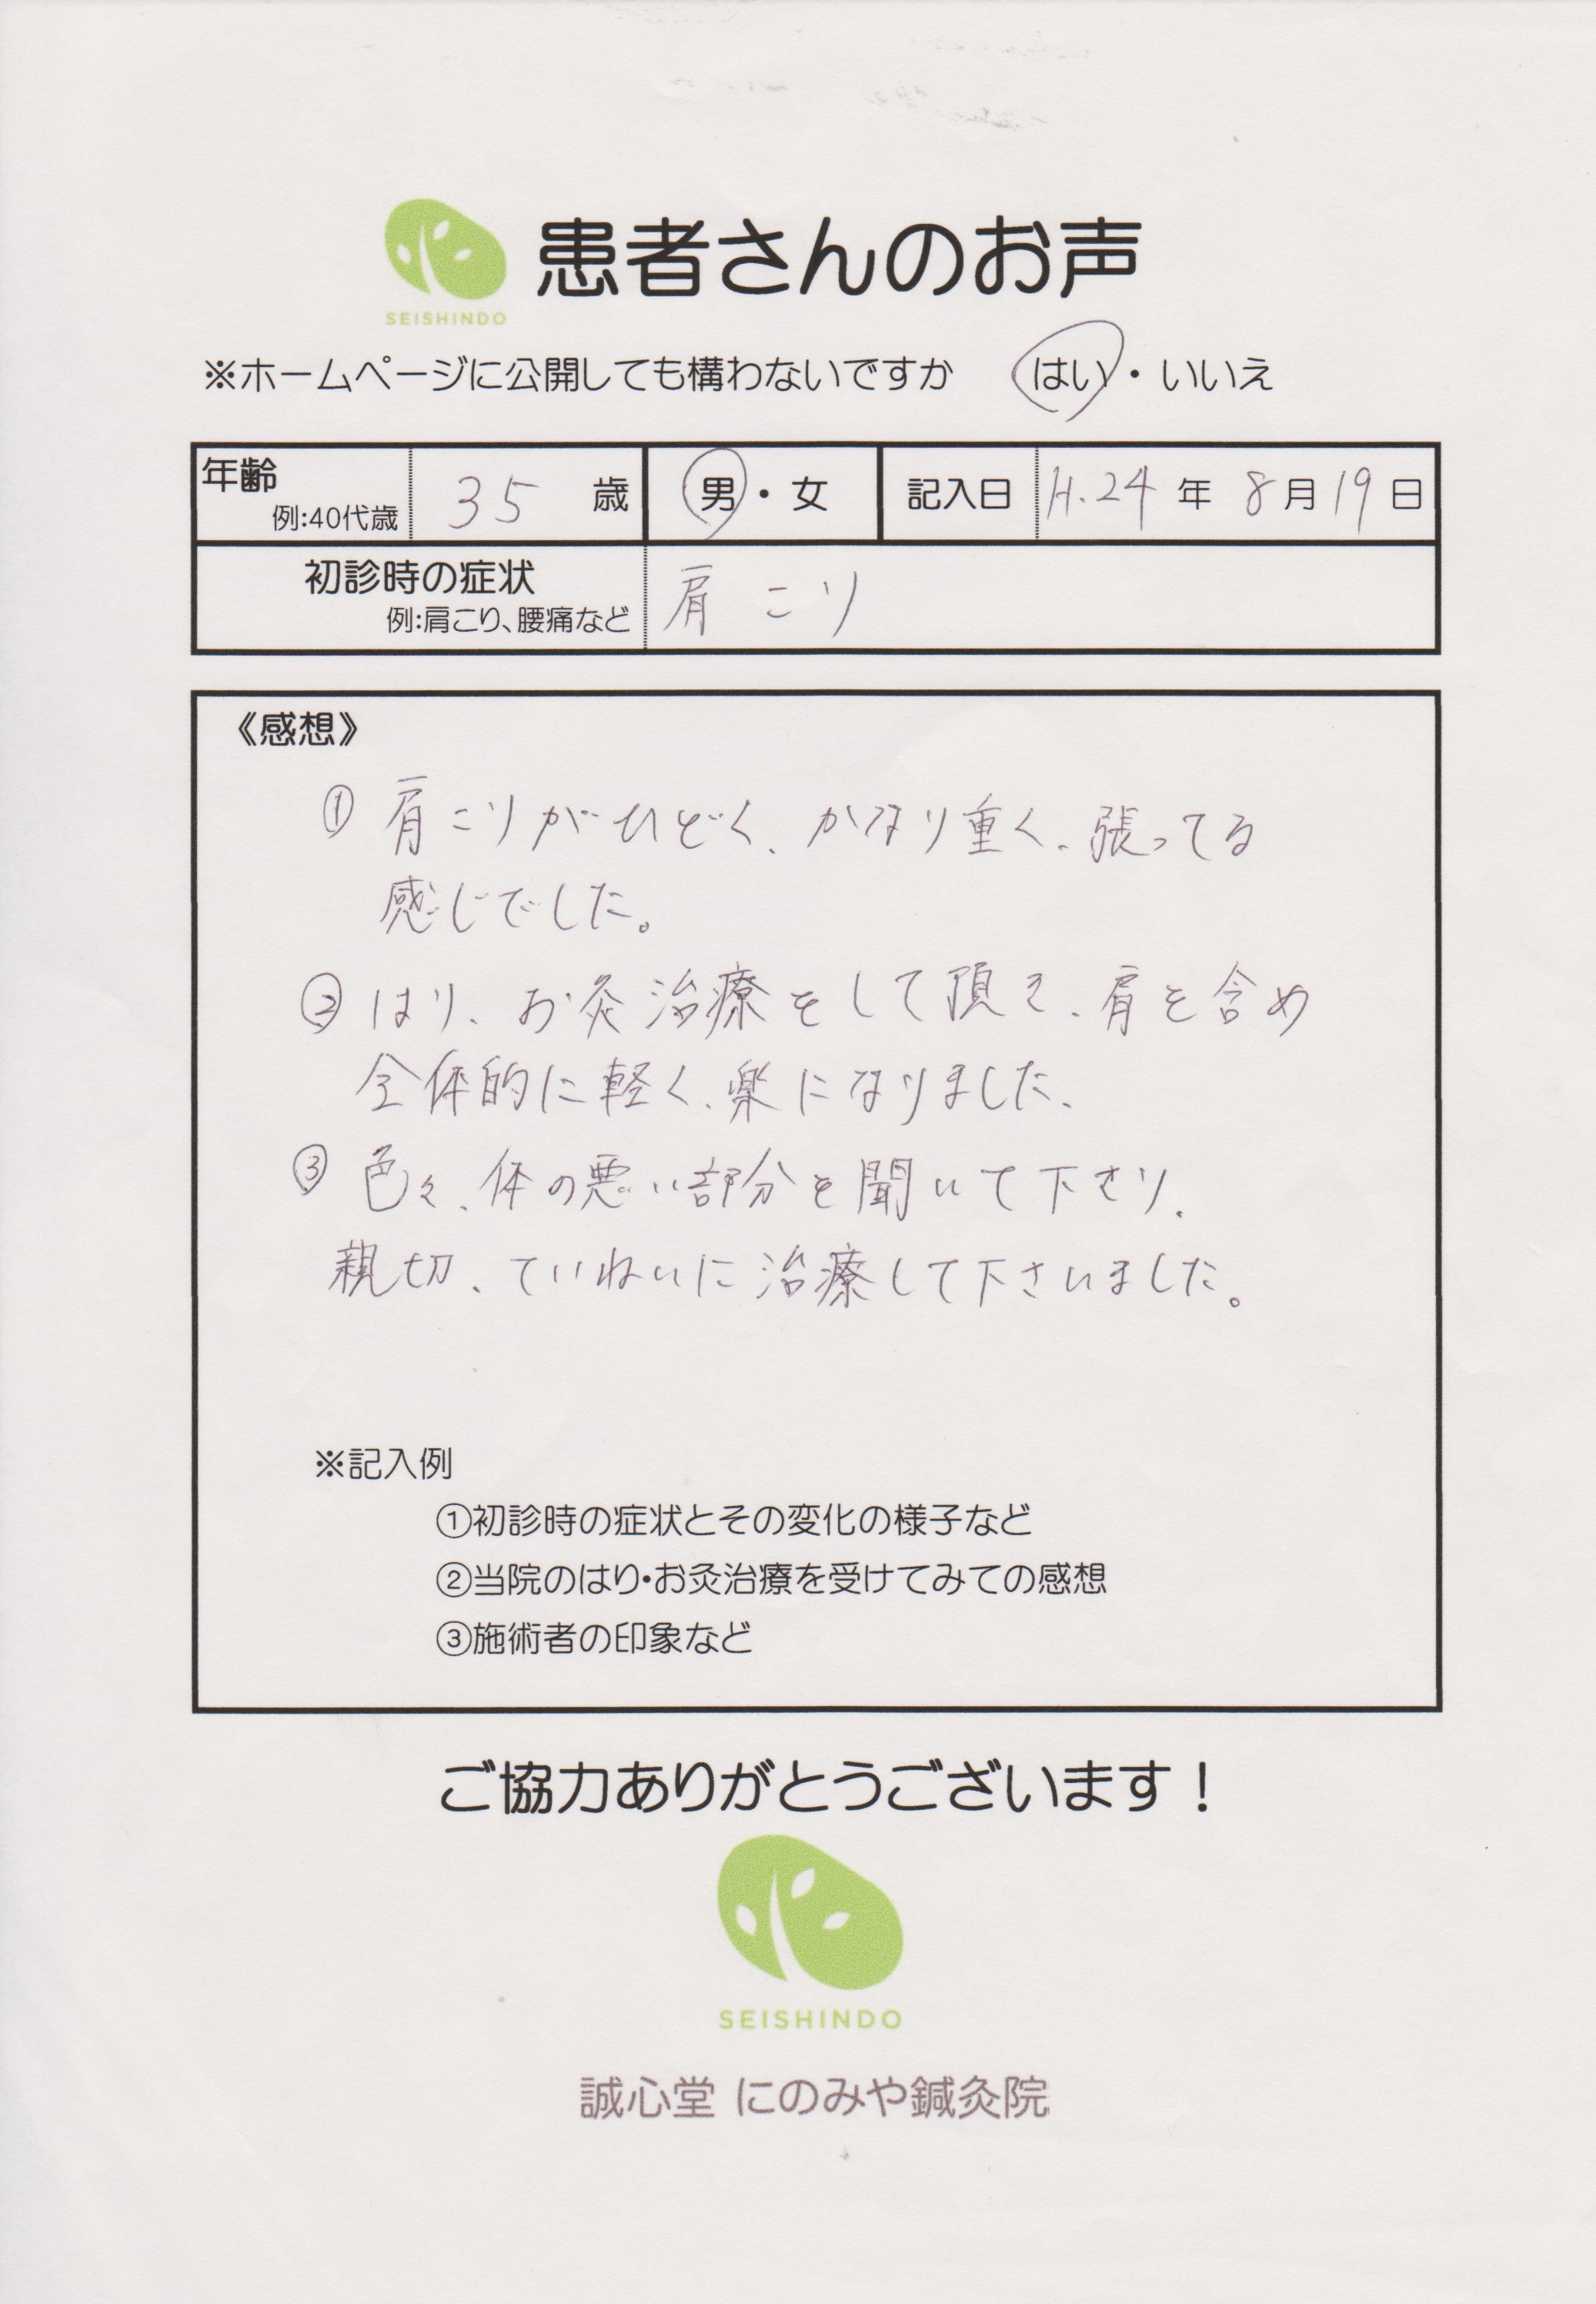 SEISHINDO
患者さんのお声
※ホームページに公開しても構わないですか はい・いいえ
年齢 例:40代歳 35 歳 男・女 記入日 H.24 年 8月19日
初診時の症状 肩こり
例:肩こり、腰痛など
《感想》
① 肩こりがひどく、かなり重く、張ってる
感じでした。
② はり、お灸治療をして頂き、肩を含め
全体的に軽く、楽になりました、
③ 色々、体の悪い部分を聞いて下さり、
親切、ていねいに治療して下さいました。
※記入例
①初診時の症状とその変化の様子など
②当院のはり・お灸治療を受けてみての感想
③施術者の印象など
ご協力ありがとうございます！
SEISHINDO
誠心堂 にのみや鍼灸院